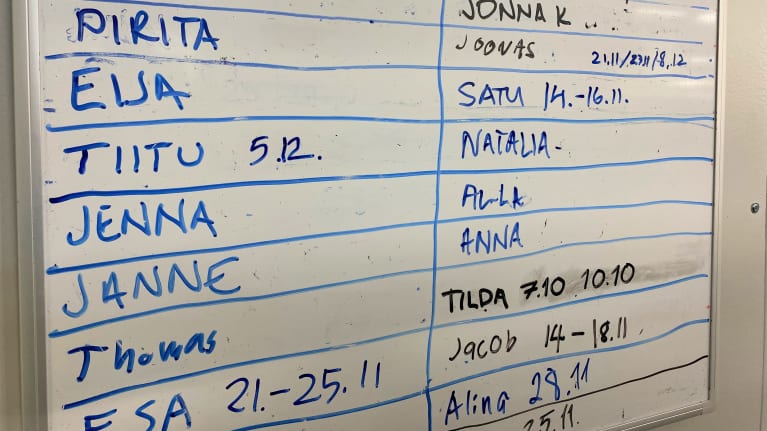 PIRITA
EIJA
TIITU 5.12.
JENNA
JANNE
Thomas
ESA 21.-25.11
JONNA K
JOONAS 21.11/23.11/8.12
SATU 14.-16.11.
NATALIA-
ALLA
ANNA
TILDA 7.10 10.10
Jacob 14-18.11
Alina 28.11
25.11.